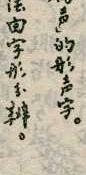 声”的形声字。
法由字形分辨。